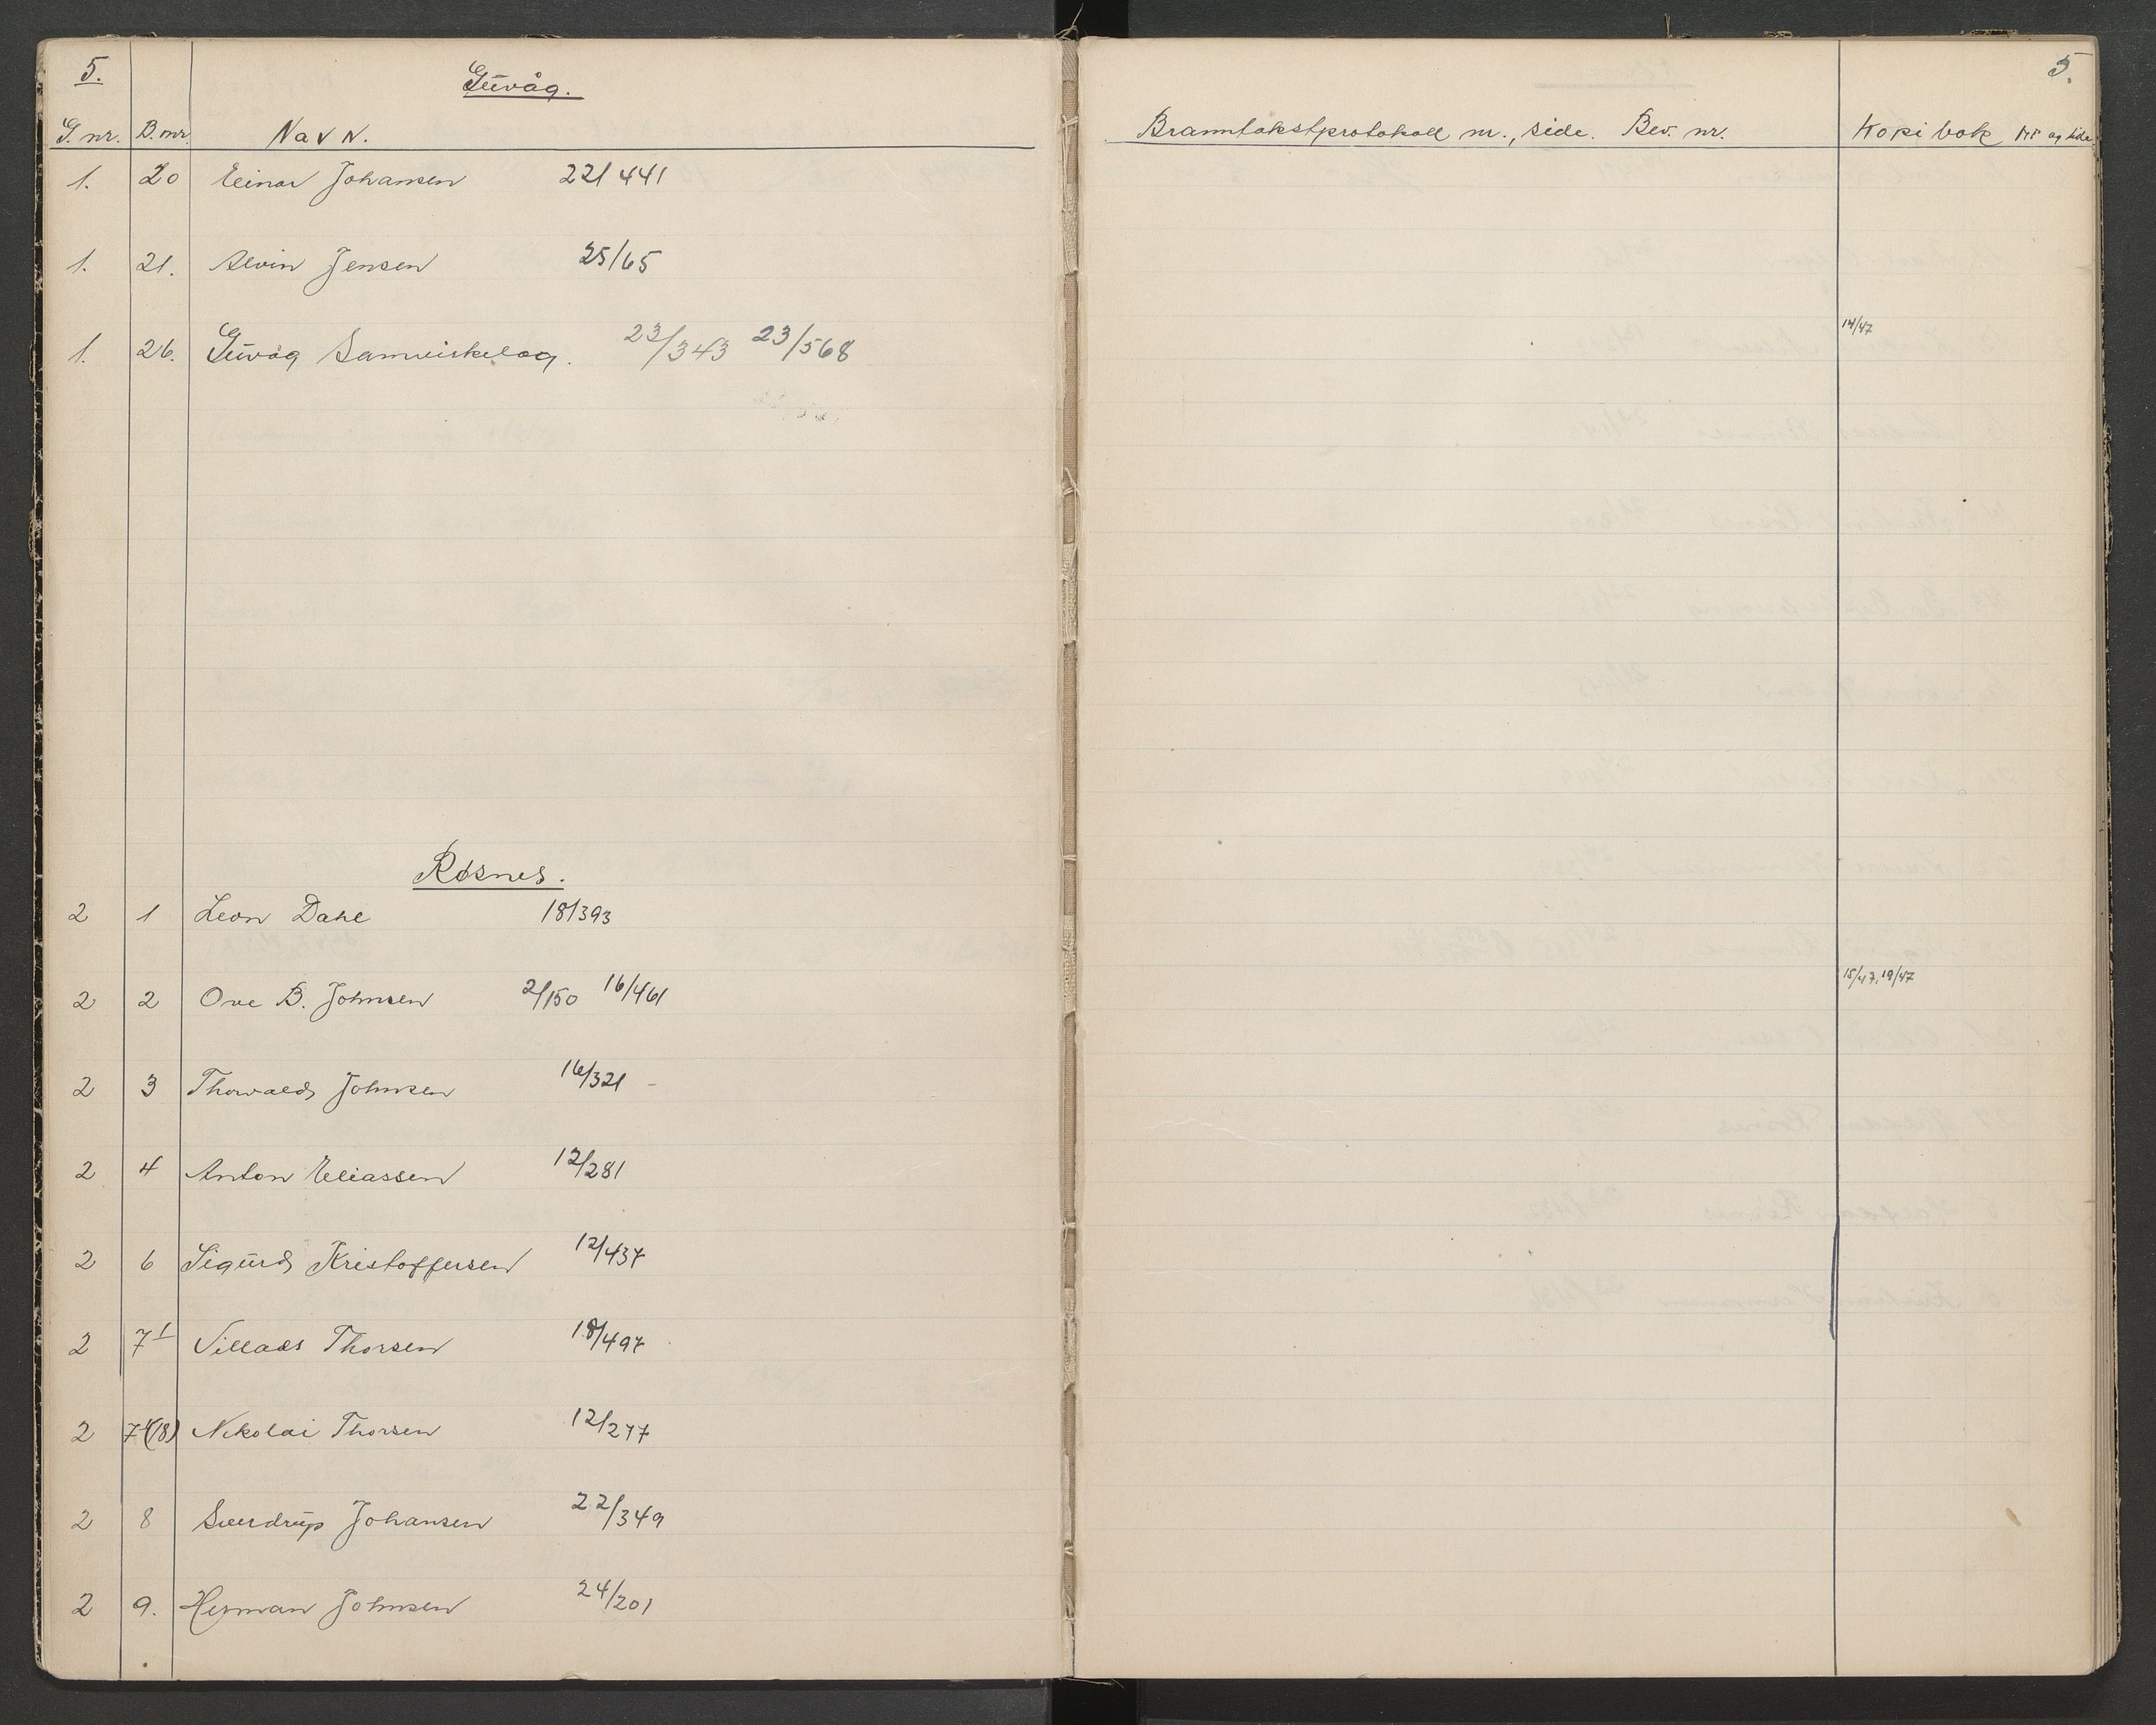 5.
Guvåg.
5.
G. nr. B. nr. Navn. Branntakstprotokoll nr., side. Bev. nr. Kopibok nr og side
1. 20 Einar Johansen 22/441
1. 21. Alvin Jensen 25/65
14/47
1. 26. Guvåg Samvirkelag. 23/343 23/568
Røsnes.
2 1 Leon Dahl 18/393
15/47, 19/47
2 2 Ove B. Johnsen 2/150 16/461
2 3 Thorvald Johnsen 16/321
2 4 Anton Eliassen 12/281
2 6 Sigurd Kristoffersen 12/437
2 7 1 Villads Thorsen 18/497
2 (18) Nikolai Thorsen 12/277
2 8 Sverdrup Johansen 22/349
2 9. Herman Johnsen 24/201